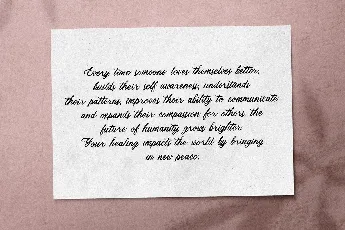 Every time someone loves themselves better,
builds their self awareness, understands
their patterns, improves their ability to communicate
and expands their compassion for others the
future of humanity grows brighter.
Your healing impacts the world by bringing
in new peace.